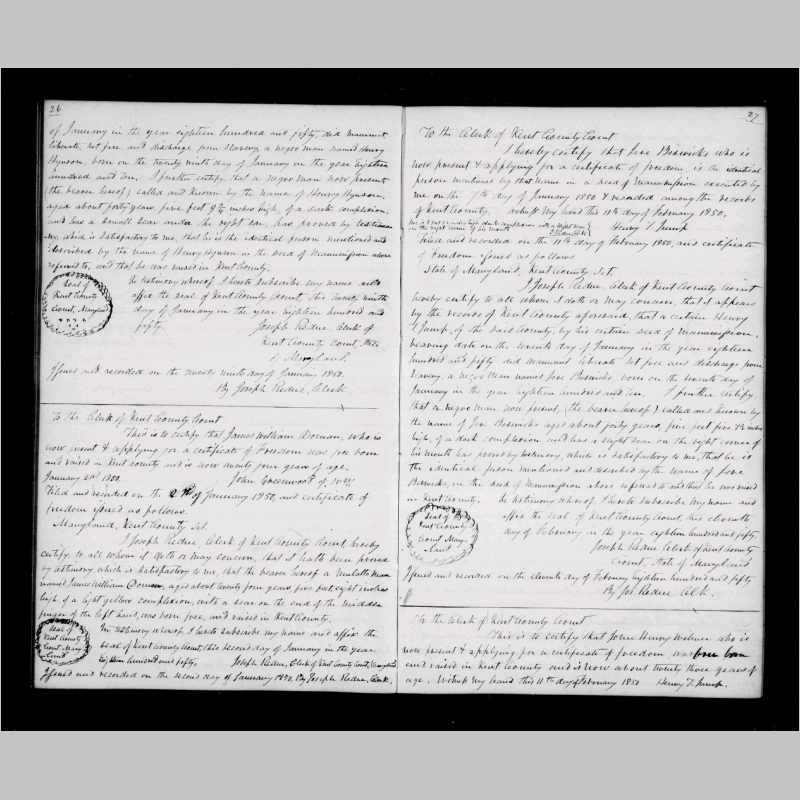 26
of January in the year eighteen hundred and fifty, did manumit
liberate, set free and discharge from slavery a negro man named Henry
Hynson, born on the twenty ninth day of January in the year Eighteen
hundred and ten. I further certify, that a negro man now present
the bearer hereof, called and known by the name of Henry Hynson,
aged about forty years, five feet inches high, of a dark complexion,
and has a small scar under the right ear, has proved by testimony
which is satisfactory to me, that he is the identical person mentioned and
described by the name of Henry Hynson in the deed of Manumission above
referred to, and that he was raised in Kent County.
Seal of
Kent County
Court, Maryland
In testimony whereof I hereto subscribe my name and
affix the seal of Kent County Court, this twenty ninth
day of January in the year eighteen hundred and
fifty.
Joseph Redue Clerk of
Kent County Court, State
of Maryland.
Issued and recorded on the twenty ninth day of January 1850.
By Joseph Redue, Clerk
To the Clerk of Kent County Court
This is to certify that James William Doman, who is
now present & applying for a certificate of Freedom was free born
and raised in Kent County and is now twenty four years of age.
January 2nd 1850. John Greenwood of Wm
Filed and recorded on the 2nd of January 1850, and certificate of
freedom issued as follows.
Maryland, Kent County Sct.
I Joseph Redue, Clerk of Kent County Court, hereby
certify to all whom it doth or may concern, that it hath been proved
by testimony which is satisfactory to me, that the bearer hereof a Mulatto man
named James William Doman, aged about twenty four years, five feet eight inches
high, of a light yellow complexion, with a scar on the end of the middle
finger of the left hand, was born free, and raised in Kent County.
Seal of
Kent County
Court Mary
land
In testimony whereof, I hereto subscribe my name and affix the
seal of Kent County Court, this second day of January in the year
Eighteen hundred and fifty. Joseph Redue, Clerk of Kent County Court, Maryland
Issued and recorded on the second day of January 1850. By Joseph Redue, Clerk.
27
To the Clerk of Kent County Court
I hereby certify that Jere Beswicks who is
now present & applying for a certificate of freedom, is the identical
person mentioned by that name in a deed of Manumission executed by
me on the 7th day of January 1850 & recorded among the records
of Kent County. Witness My hand this 11th day of February 1850.
in the right corner of his mouth
Henry T. Jump
Filed and recorded on the 11th day of February 1850, and certificate
of Freedom issued as follows
State of Maryland, Kent County Sct.
I Joseph Redue, Clerk of Kent County Court
hereby certify to all whom it doth or may concern, that it appears
by the records of Kent County aforesaid, that a certain Henry
T. Jump, of the said County, by his certain deed of manumission,
bearing date on the seventh day of January in the year eighteen
hundred and fifty did manumit liberate set free and discharge from
slavery, a negro man named Jere Beswicks born on the twenty day of
January in the year eighteen hundred and ten. I further certify
that a negro man now present, (the bearer hereof) called and known by
the name of Jere Beswicks aged about forty years, five feet five inches
high, of a dark complexion and has a slight scar on the right corner of
his mouth has proved by testimony, which is satisfactory to me, that he is
the identical person mentioned and described by the name of Jere
Beswicks, in the deed of Manumission above referred to and that he was raised
in Kent County. In testimony whereof, I hereto subscribe my name and
Seal of
Kent County
Court Mary
land
affix the seal of Kent County Court, this eleventh
day of February in the year eighteen hundred and fifty
Joseph Redue Clerk of Kent County
Court, State of Maryland
Issued and recorded on the eleventh day of February eighteen hundred and fifty
By Jos. Redue Clk.
To the Clerk of Kent County Court
This is to certify that John Henry who is
now present & applying for a certificate of freedom was free born
and raised in Kent County and is now about twenty three years of
age. Witness My hand this 11th day of February 1850 Henry T. Jump.